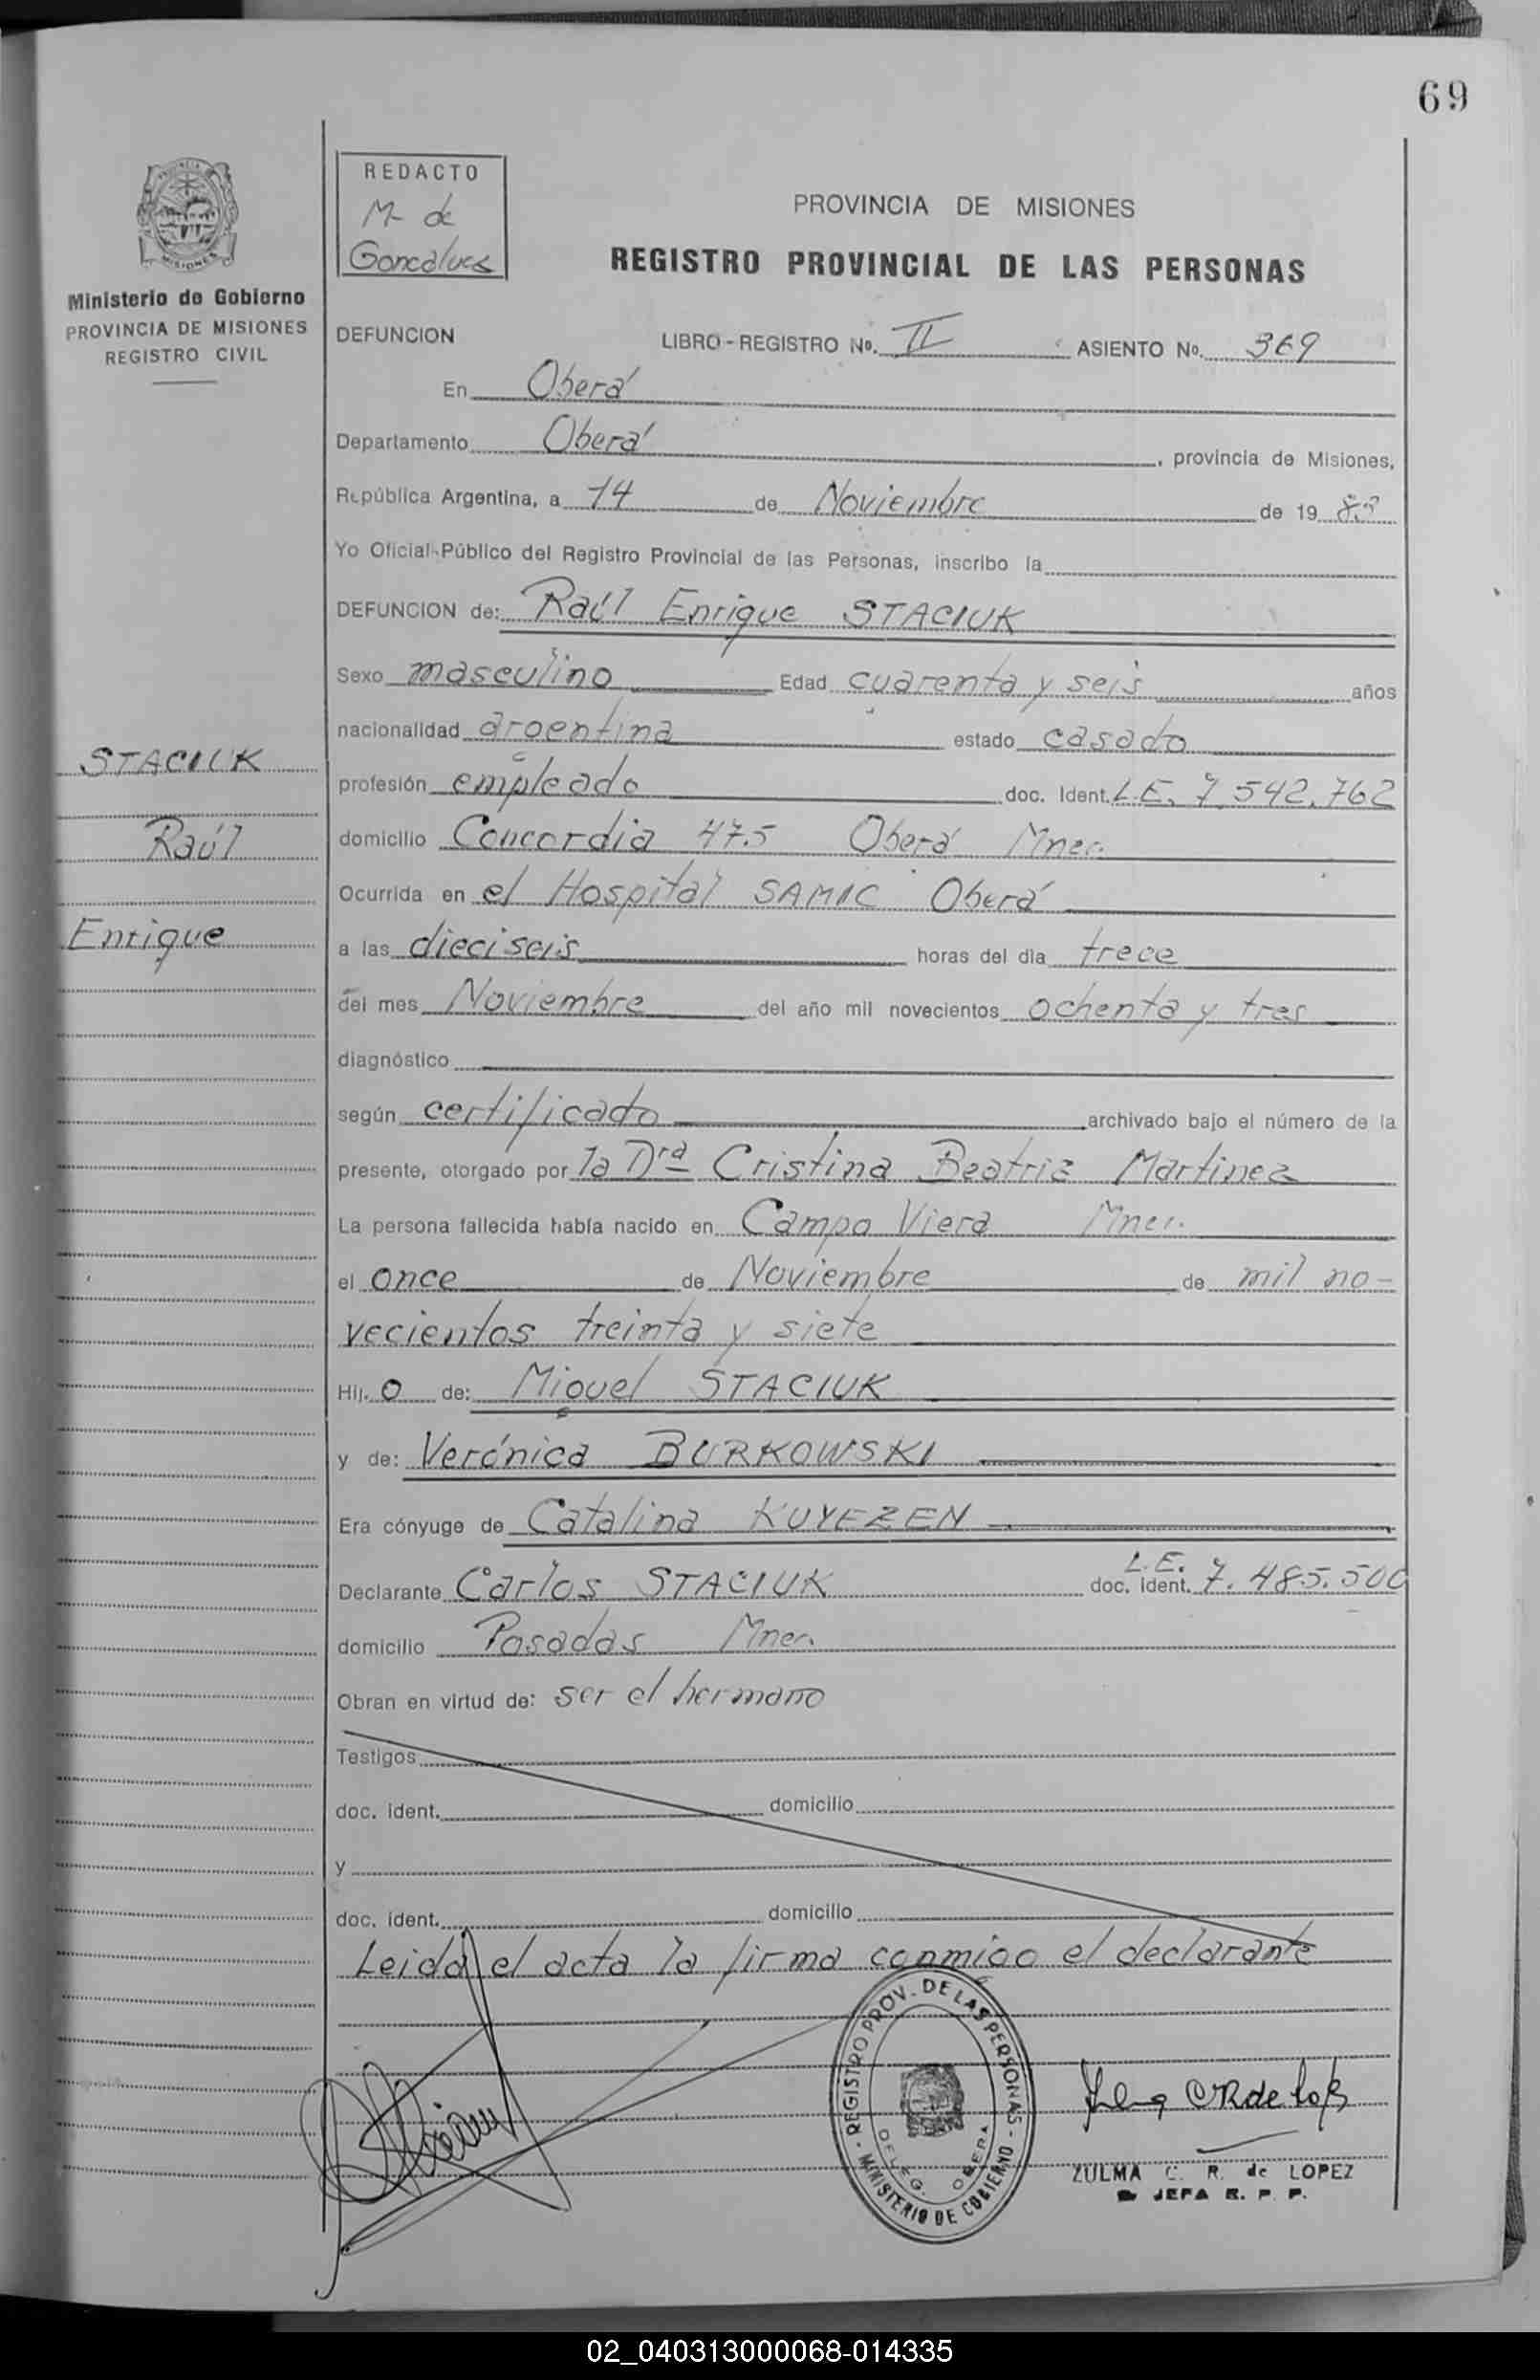 69
REDACTO
M de
Goncalves
PROVINCIA DE MISIONES
REGISTRO PROVINCIAL DE LAS PERSONAS
Ministerio de Gobierno
PROVINCIA DE MISIONES
REGISTRO CIVIL
DEFUNCION LIBRO - REGISTRO No. II ASIENTO No. 369
En Oberá
Departamento Oberá, provincia de Misiones,
República Argentina, a 14 de Noviembre de 19 83
Yo Oficial Público del Registro Provincial de las Personas, inscribo la
DEFUNCION de: Raúl Enrique STACIUK
Sexo masculino Edad cuarenta y seis años
nacionalidad argentina estado casado
STACIUK
Raúl
Enrique
profesión empleado doc. Ident. L.E. 7.542.762
domicilio Concordia 475 Oberá Mnes.
Ocurrida en el Hospital SAMIC Oberá
a las dieciseis horas del día trece
del mes Noviembre del año mil novecientos ochenta y tres
diagnóstico
según certificado archivado bajo el número de la
presente, otorgado por la Dra Cristina Beatriz Martinez
La persona fallecida había nacido en Campo Viera Mnes.
el once de Noviembre de mil no-
vecientos treinta y siete
Hij. o de: Miguel STACIUK
y de: Verónica BURKOWSKI
Era cónyuge de Catalina KUYEZEN
Declarante Carlos STACIUK doc. ident. L.E. 7.485.500
domicilio Posadas Mnes.
Obran en virtud de: ser el hermano
Testigos
doc. ident. domicilio
y
doc. ident. domicilio
Leida el acta la firma conmigo el declarante
REGISTRO PROV. DE LAS PERSONAS - MINISTERIO DE GOBIERNO -
DELEG. OBERA
ZULMA C. R. de LOPEZ
JEFA R. P. P.
02_040313000068-014335